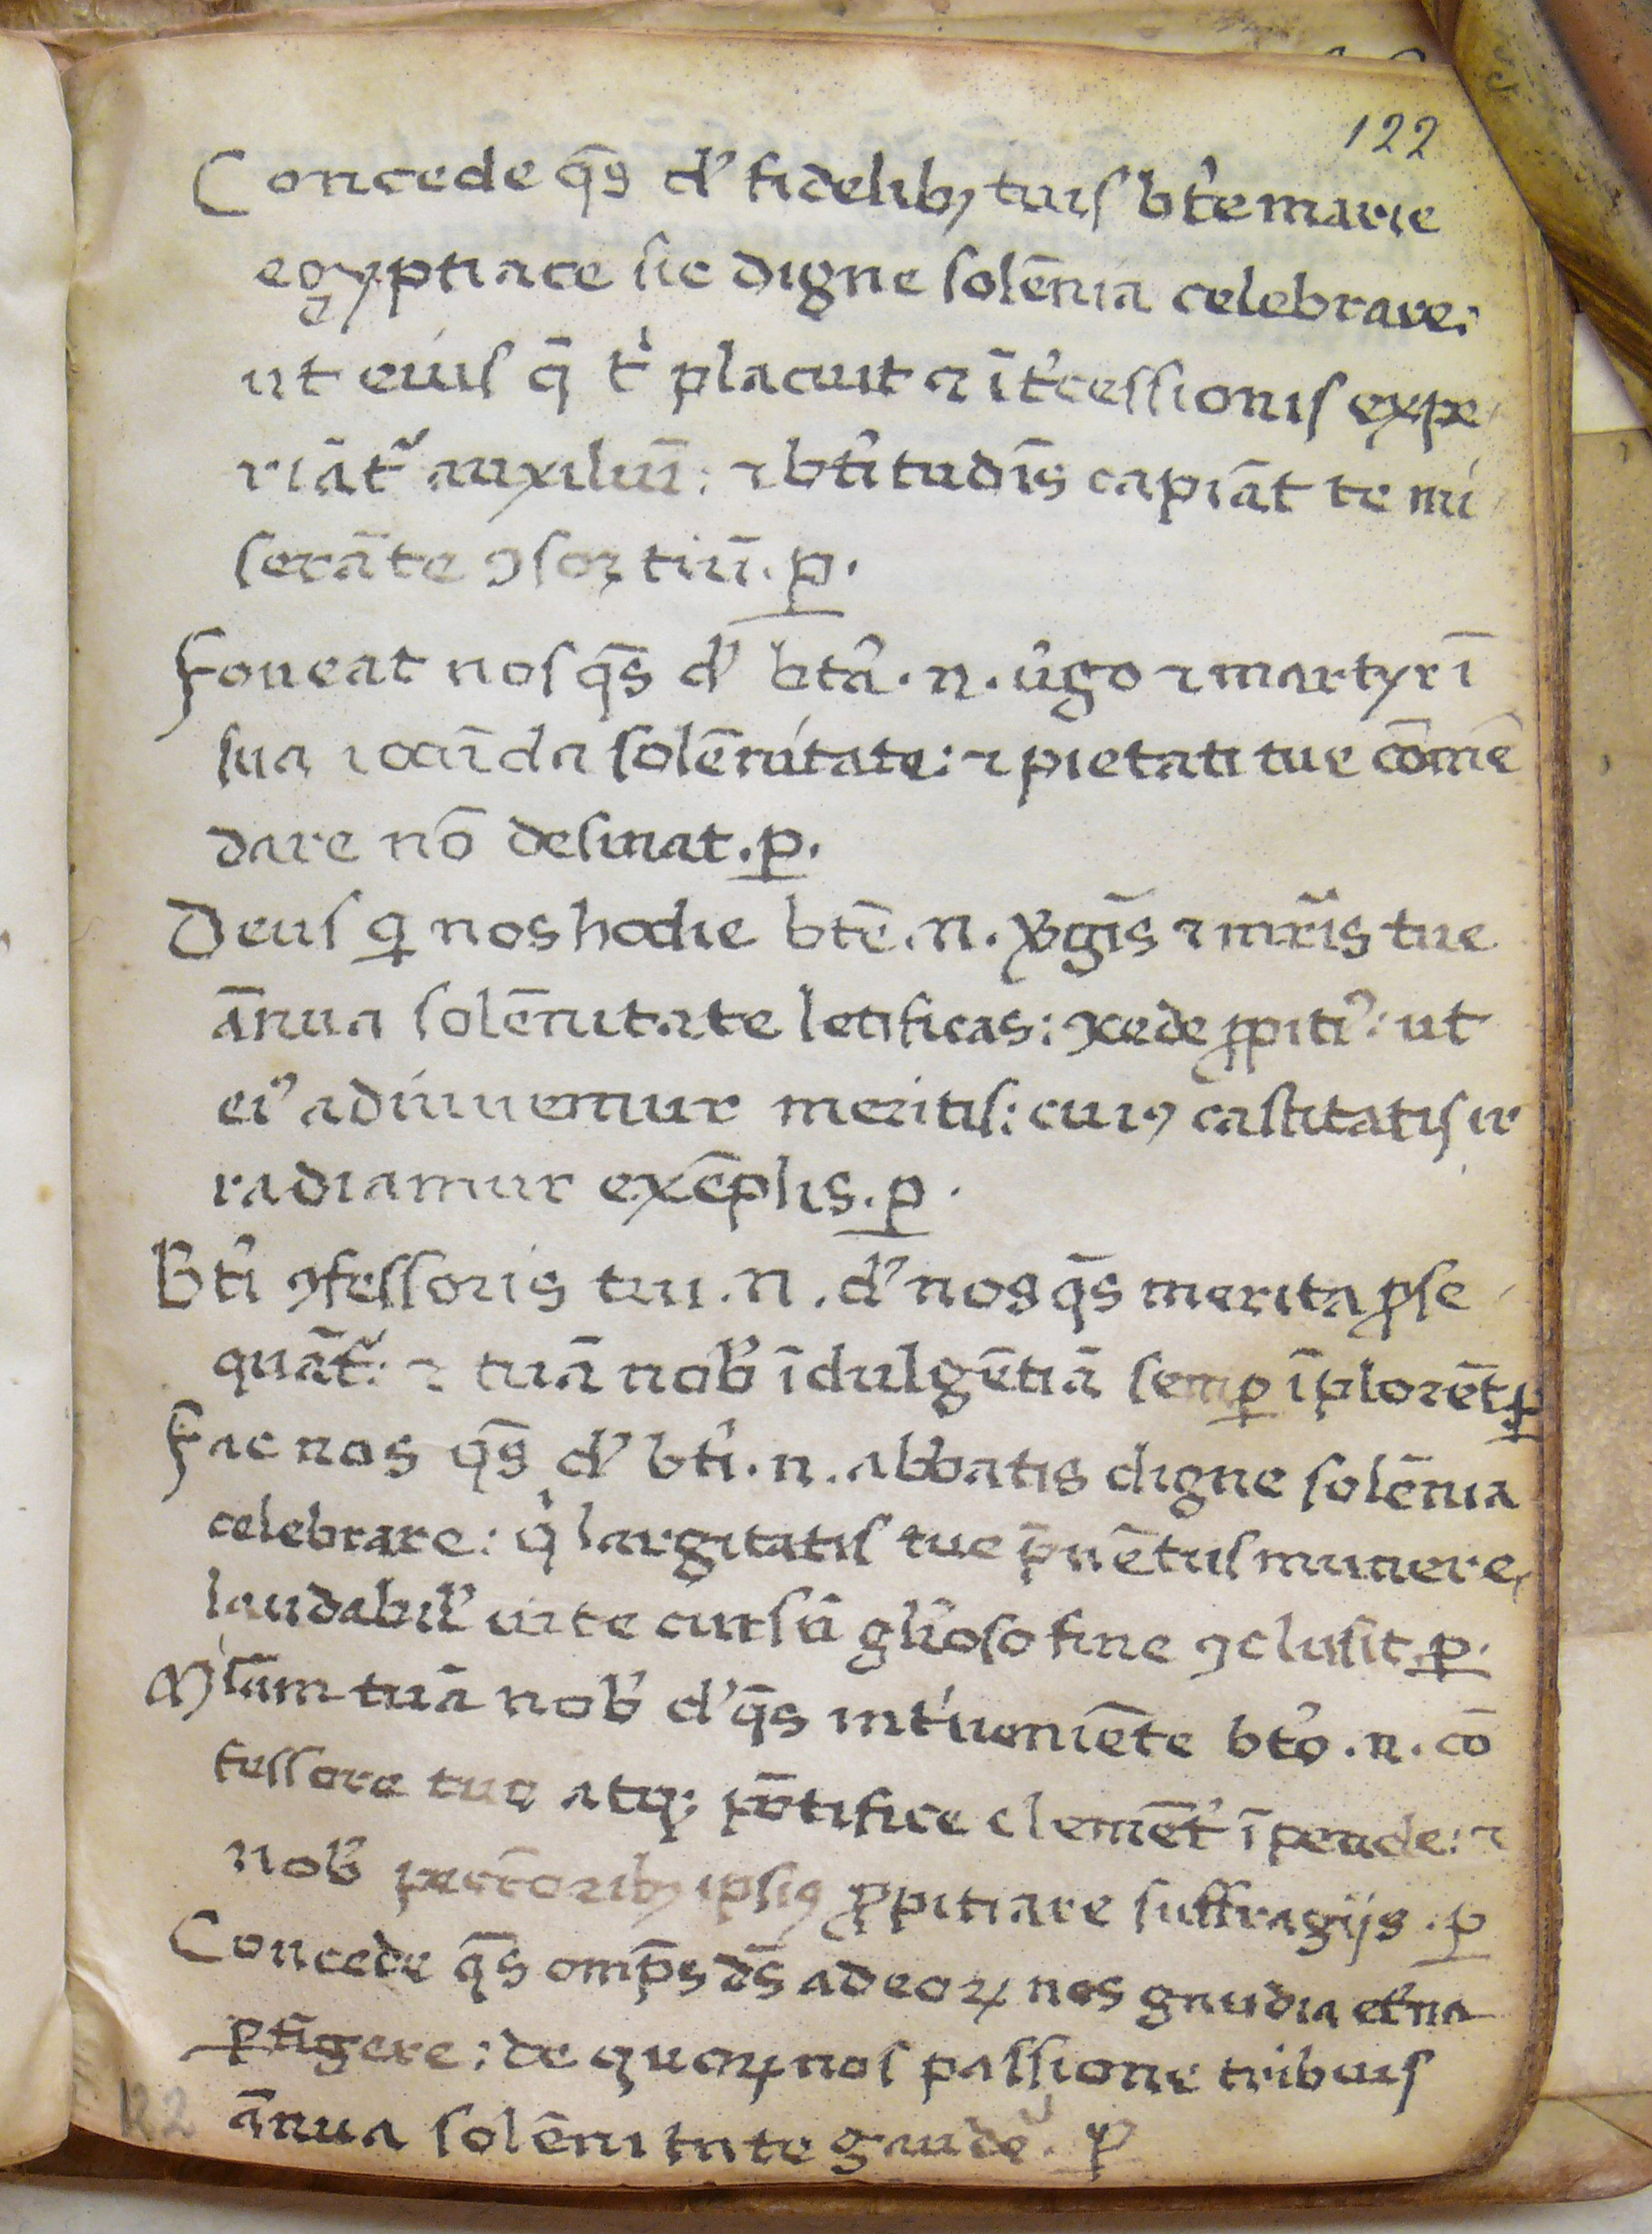 122
Concede q̄s d' fidelibꝫ tuis b'te marie
egyptiace sic digne solēnia celebrare:
ut eius q̄ t' placuit ⁊ īt'cessionis expe
riāt' auxiliuȝ: ⁊ b'titudīs capiāt te mi
serāte ꝯsortiū. p.
Foueat nos q̄s d' b'ta. n. u'go ⁊ martyr ī
sua iocūda solēnitate: ⁊ pietati tue cōmē
dare nō desinat. p.
Deus qi nos hodie btē. n. v'gīs ⁊ mr̄is tue
ānua solēnitate letificas: ꝯcede ꝓpiti': ut
ei' adiuuemur meritis: cuiꝰ castitatis ir
radiamur exēplis. p.
B'ti ꝯfessoris tui. N. d' nos q̄s merita ꝓse
quāt': ⁊ tuā nob' īdulgētiā semꝑ īplorēt ꝑ
Fac nos q̄s d' b'ti. n. abbatis digne solēnia
celebrare: q' largitatis tue p̄uētus munere,
laudabil' uite cursū gl'ioso fine ꝯclusit. p.
M'iam tuā nob' d' q̄s int'ueniēte b'to. n. cō
fessore tuo atqꝫ pōtifice clemēt' īpende: ⁊
nob' peccōribꝫ ipsiꝰ ꝓpitiare suffragijs. p
Concede q̄s omp̄s d̄s ad eoꝝ nos gaudia et'na
ꝑtīgere: de quoꝝ nos passione tribuis
ānua solēnitate gaude'. p
122